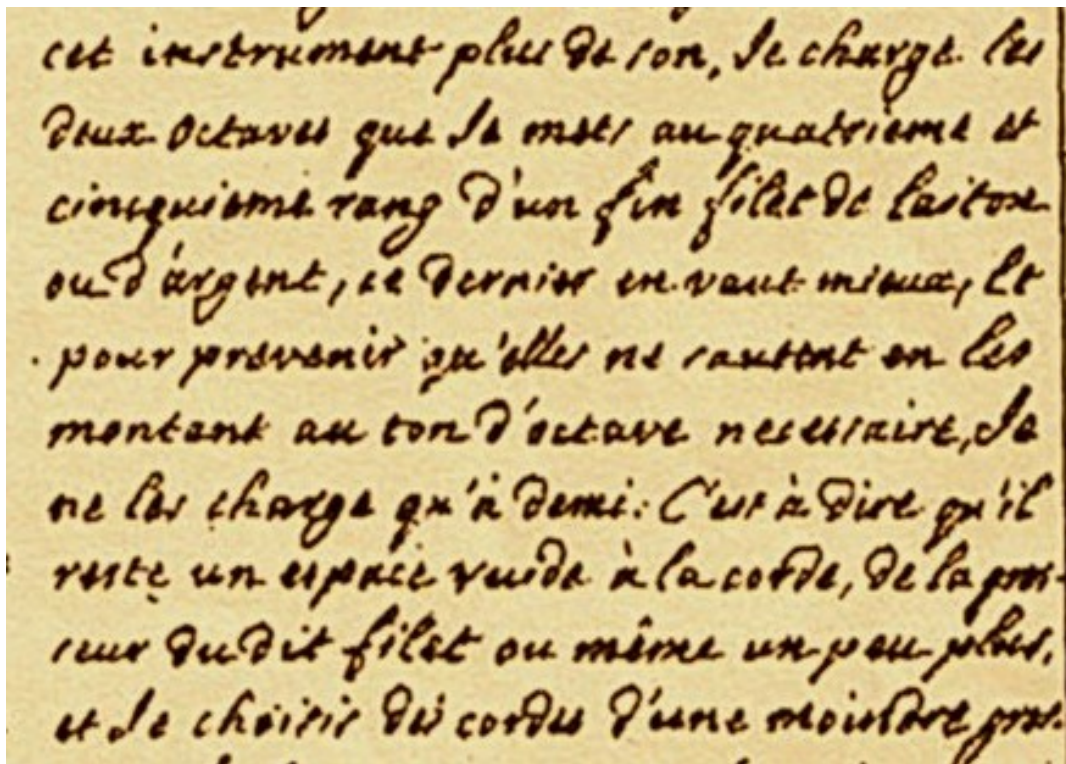 cet instrument plus de son, Je charge les
deux octaves que Je mets au quatrieme et
cincquieme rang d'un fin filet de laiton
ou d'argent, ce dernier en vaut mieux, Et
pour prevenir qu'elles ne sautent en les
montant au ton d'octave necessaire, Je
ne les charge qu'à demi: C'est à dire qu'il
reste un espace vuide à la corde, de la gros-
seur du dit filet ou même un peu plus,
et Je choisis des cordes d'une moindre gros-